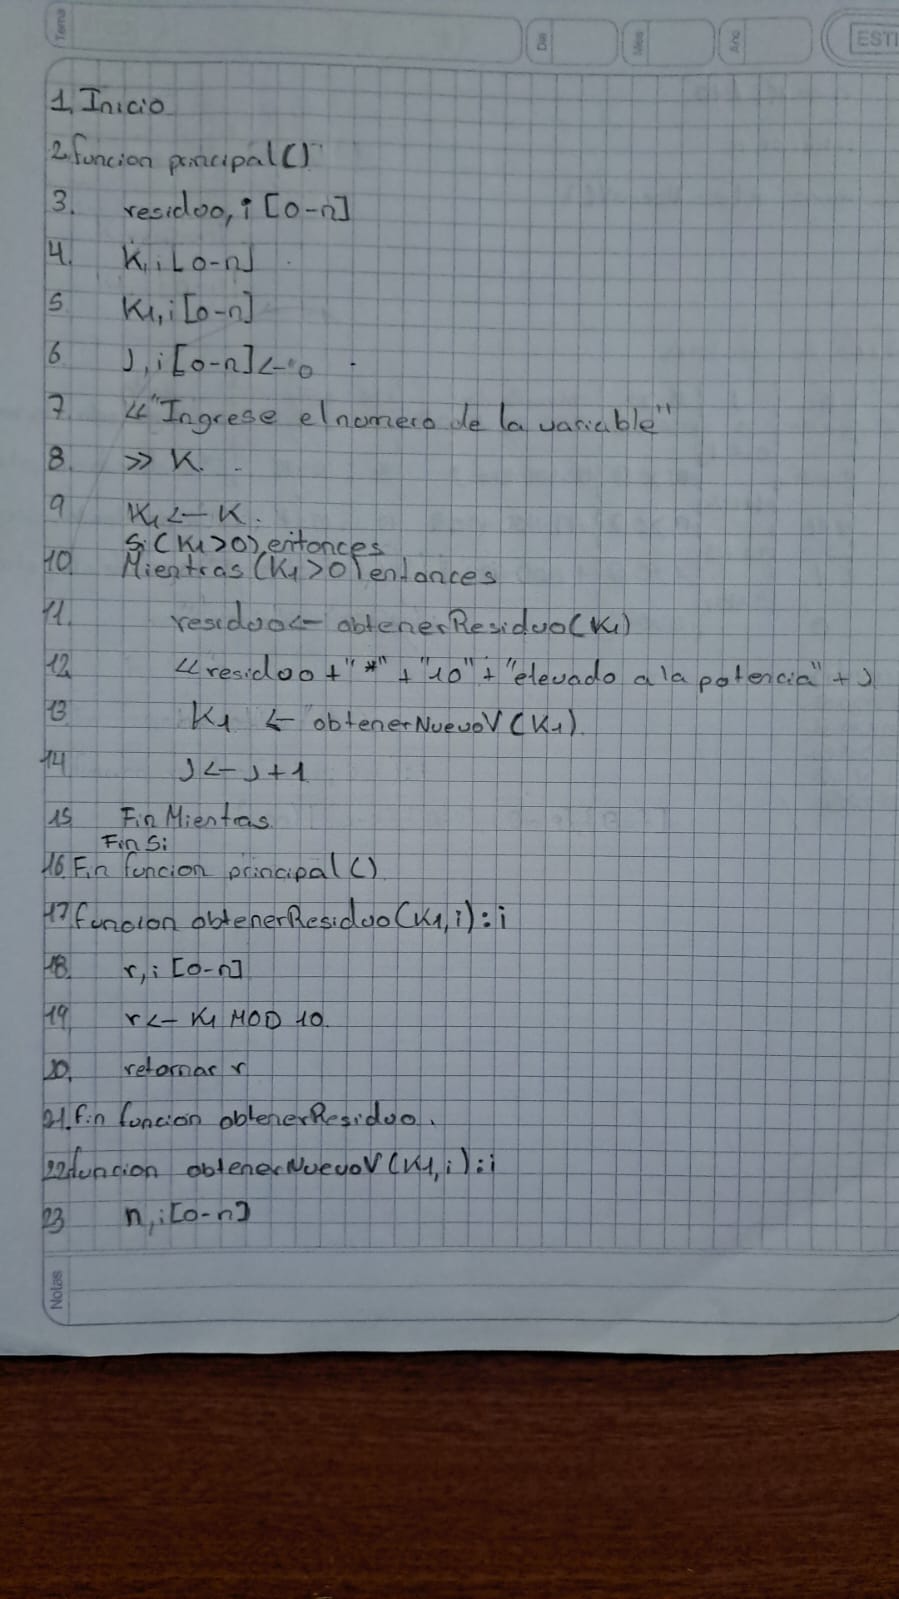 Tema
Dia
Mes
Año
ESTI
1. Inicio
2. funcion principal()
3. residuo, i [0-n]
4. K, i [0-n]
5 K1, i [0-n]
6 J, i [0-n] <- 0
7 << "Ingrese el numero de la variable"
8. >> K.
9 K1 <- K.
Si (K1>0), entonces
10. Mientras (K1>0) entonces
11. residuo <- obtenerResiduo(K1)
12 << residuo + "*" + "10" + "elevado a la potencia" + J
13 K1 <- obtenerNuevoV(K1)
14 J <- J+1
15 Fin Mientras
Fin Si
16. Fin funcion principal()
17 funcion obtenerResiduo(K1,i):i
18. r, i [0-n]
19 r <- K1 MOD 10
20. retornar r
21. fin funcion obtenerResiduo.
22 funcion obtenerNuevoV(K1,i):i
23 n, i [0-n]
Notas